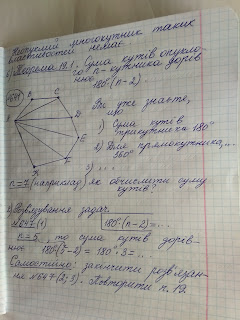 Неопуклий многокутник таких
властивостей немає.
5) Теорема 19.1. Сума кутів опукло-
го n-кутника дорів-
нює 180°(n-2).
B C
A D
E
F
Ви уже знаєте,
що
1) Сума кутів
трикутника 180°
2) Для прямокутника,...
360°
3) ...
n=7 (наприклад) як обчислити суму
кутів?
Розв'язування задач.
№647(1) 180°(n-2)=...
n=5, то сума кутів дорів-
нює 180°(5-2) = 180°·3=...
Самостійно: закінчити розв'язан-
ня №647(2;3). Повторити п. 19.